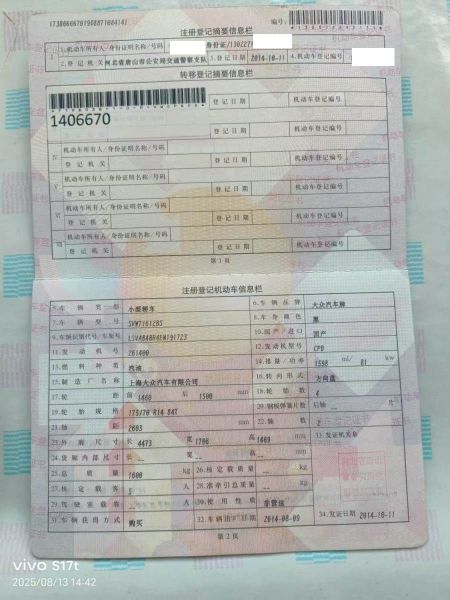 注册登记摘要信息栏
1.机动车所有人/身份证明名称/号码 身份证/130227
2.登记机关 河北省唐山市公安局交通警察支队 3.登记日期 2014-10-11 4.机动车登记编号
转移登记摘要信息栏
登记日期 机动车登记编号
1406670
机动车所有人/身份证明名称/号码
登记机关 登记日期 机动车登记编号
机动车所有人/身份证明名称/号码
登记机关 登记日期 机动车登记编号
机动车所有人/身份证明名称/号码
登记机关 登记日期 机动车登记编号
机动车所有人/身份证明名称/号码
登记机关 登记日期 机动车登记编号
第1页
注册登记机动车信息栏
5.车辆类型 小型轿车 6.车辆品牌 大众汽车牌
7.车辆型号 8.车身颜色 黑
9.车辆识别代号/车架号 10.国产/进口 国产
11.发动机号 Z61400 12.发动机型号 CPD
13.燃料种类 汽油 14.排量/功率 1598 ml/ 81 kw
15.制造厂名称 上海大众汽车有限公司 16.转向形式 方向盘
17.轮距 前 1460 后 1500 mm 18.轮胎数 4
19.轮胎规格 175/70 R14 84T 20.钢板弹簧片数 后轴 -- 片
21.轴距 2603 mm 22.轴数 2
23.外廓尺寸 长 4473 宽 1706 高 1469 mm 33.发证机关章
24.货厢内部尺寸 长 -- 宽 -- 高 -- mm
25.总质量 1600 kg 26.核定载质量 -- kg
27.核定载客 5 人 28.准牵引总质量 -- kg
29.驾驶室载客 -- 人 30.使用性质 非营运
31.车辆获得方式 购买 32.车辆出厂日期 2014-08-09 34.发证日期 2014-10-11
第2页
vivo S17t
2025/08/13 14:42